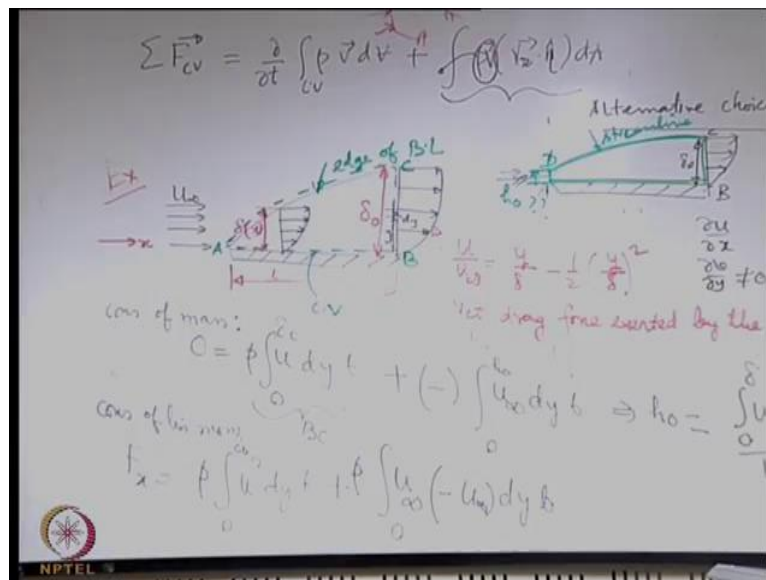 Σ F⃗_CV = ∂/∂t ∫_CV ρ V⃗ dV + ∫ ρV⃗ (V⃗_r · η̂) dA
Alternative choice
streamline
Ex
U∞
edge of B.L
C
δ(x)
δ₀
dy
y
A
B
x
L
C.V
h₀ ??
D
C
δ₀
B
u/u∞ = y/δ - 1/2 (y/δ)²
∂u/∂x
∂v/∂y ≠ 0
drag force exerted by the
cons of mass:
0 = ρ ∫₀ u dy b + (-) ∫₀^h₀ u∞ dy b ⇒ h₀ = ∫₀^δ u
BC
cons of lin mom
F_x = ρ ∫₀ u dy b + ρ ∫₀ u∞ (-u∞) dy b
NPTEL